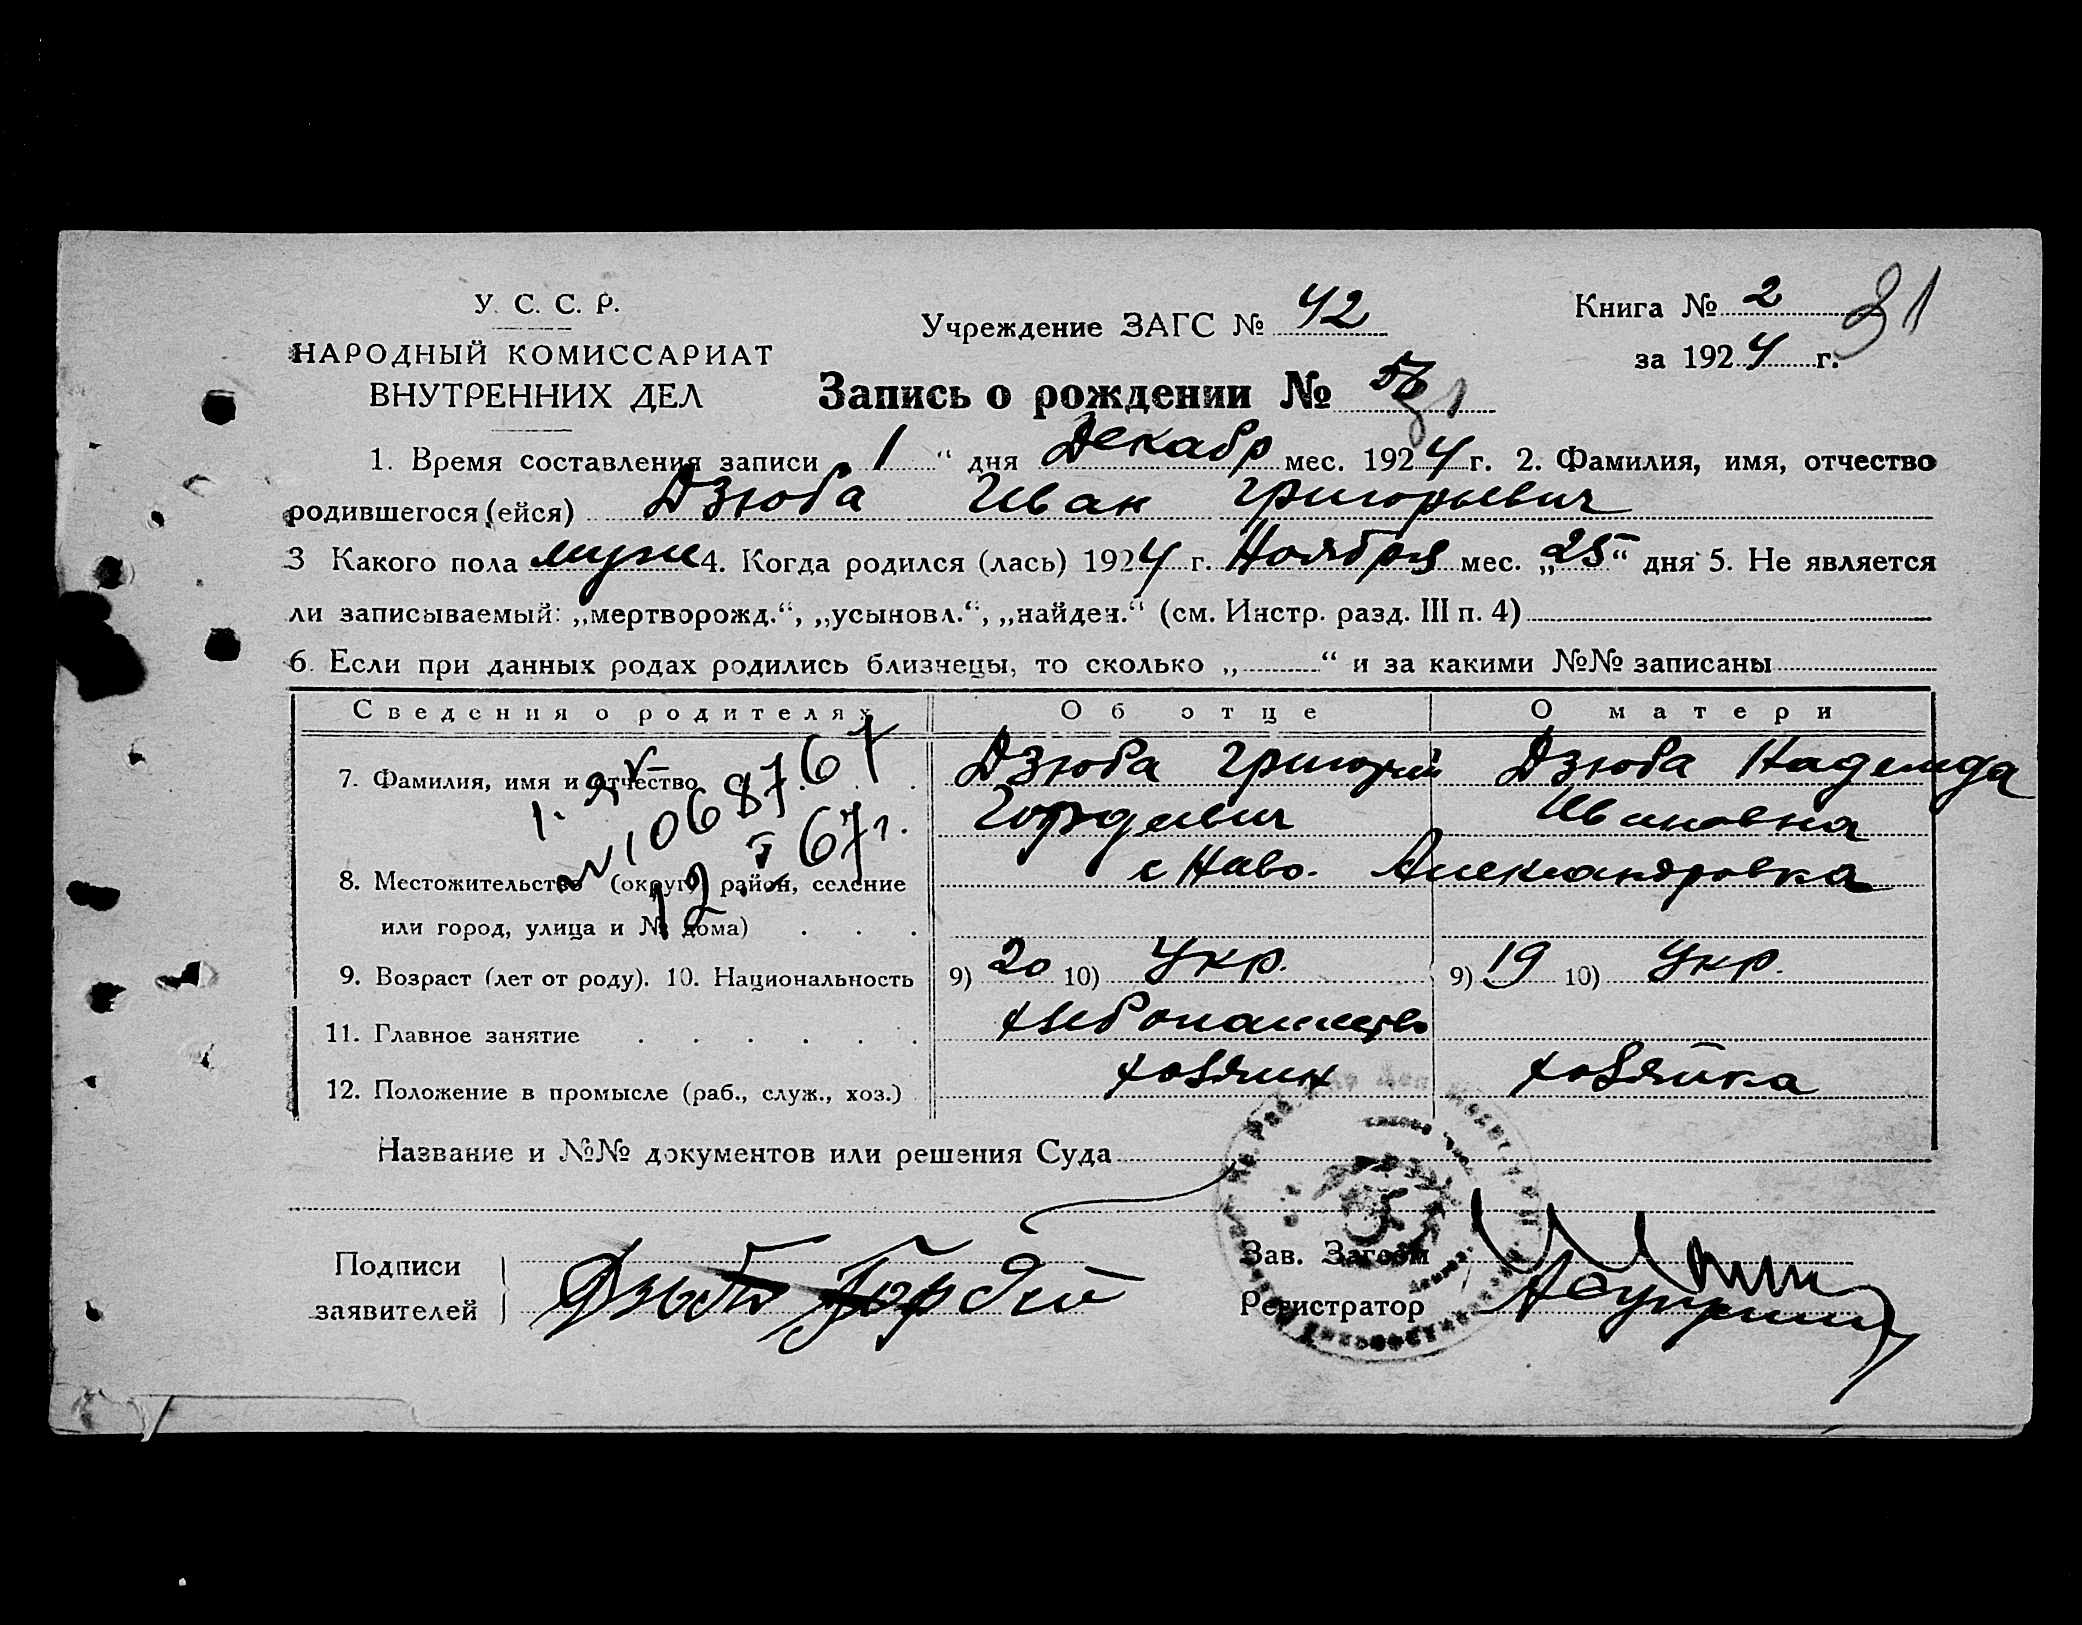 У. С. С. Р.
НАРОДНЫЙ КОМИССАРИАТ
ВНУТРЕННИХ ДЕЛ
Учреждение ЗАГС № 42
Книга № 2 31
за 1924 г.
Запись о рождении №
1. Время составления записи „ 1 “ дня Декабр мес. 1924 г. 2. Фамилия, имя, отчество
родившегося (ейся) Дзюба Иван Григорьевич
3 Какого пола муж 4. Когда родился (лась) 1924 г. Ноября мес. „25“ дня 5. Не является
ли записываемый: „мертворожд.“, „усыновл.“, „найден.“ (см. Инстр. разд. III п. 4)
6. Если при данных родах родились близнецы, то сколько „ “ и за какими №№ записаны
Сведения о родителях Об отце О матери
7. Фамилия, имя и отчество Дзюба Григорий Дзюба Надежда
Гордеевич Ивановна
8. Местожительство (округ, район, селение с Ново. Александровка
или город, улица и № дома)
9. Возраст (лет от роду). 10. Национальность 9) 20 10) Укр. 9) 19 10) Укр.
11. Главное занятие хлебопашество
12. Положение в промысле (раб., служ., хоз.) хозяин хозяйка
Название и №№ документов или решения Суда
Подписи
заявителей Дзюба Гордій
Зав. Загсом
Регистратор